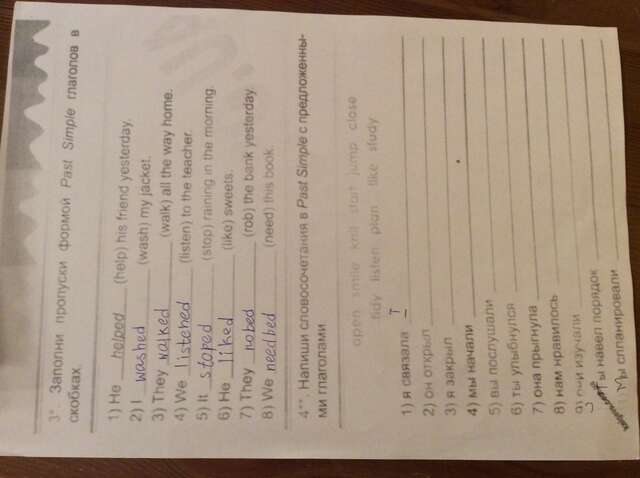 3*. Заполни пропуски формой Past Simple глаголов в
скобках.
1) He helped (help) his friend yesterday.
2) I washed (wash) my jacket.
3) They walked (walk) all the way home.
4) We listened (listen) to the teacher.
5) It stoped (stop) raining in the morning.
6) He liked (like) sweets.
7) They robed (rob) the bank yesterday.
8) We needed (need) this book.
4**. Напиши словосочетания в Past Simple с предложенны-
ми глаголами
open smile knit start jump close
tidy listen plan like study
1) я связала I
2) он открыл
3) я закрыл
4) мы начали
5) вы послушали
6) ты улыбнулся
7) она прыгнула
8) нам нравилось
9) они изучали
ты навел порядок
Мы спланировали